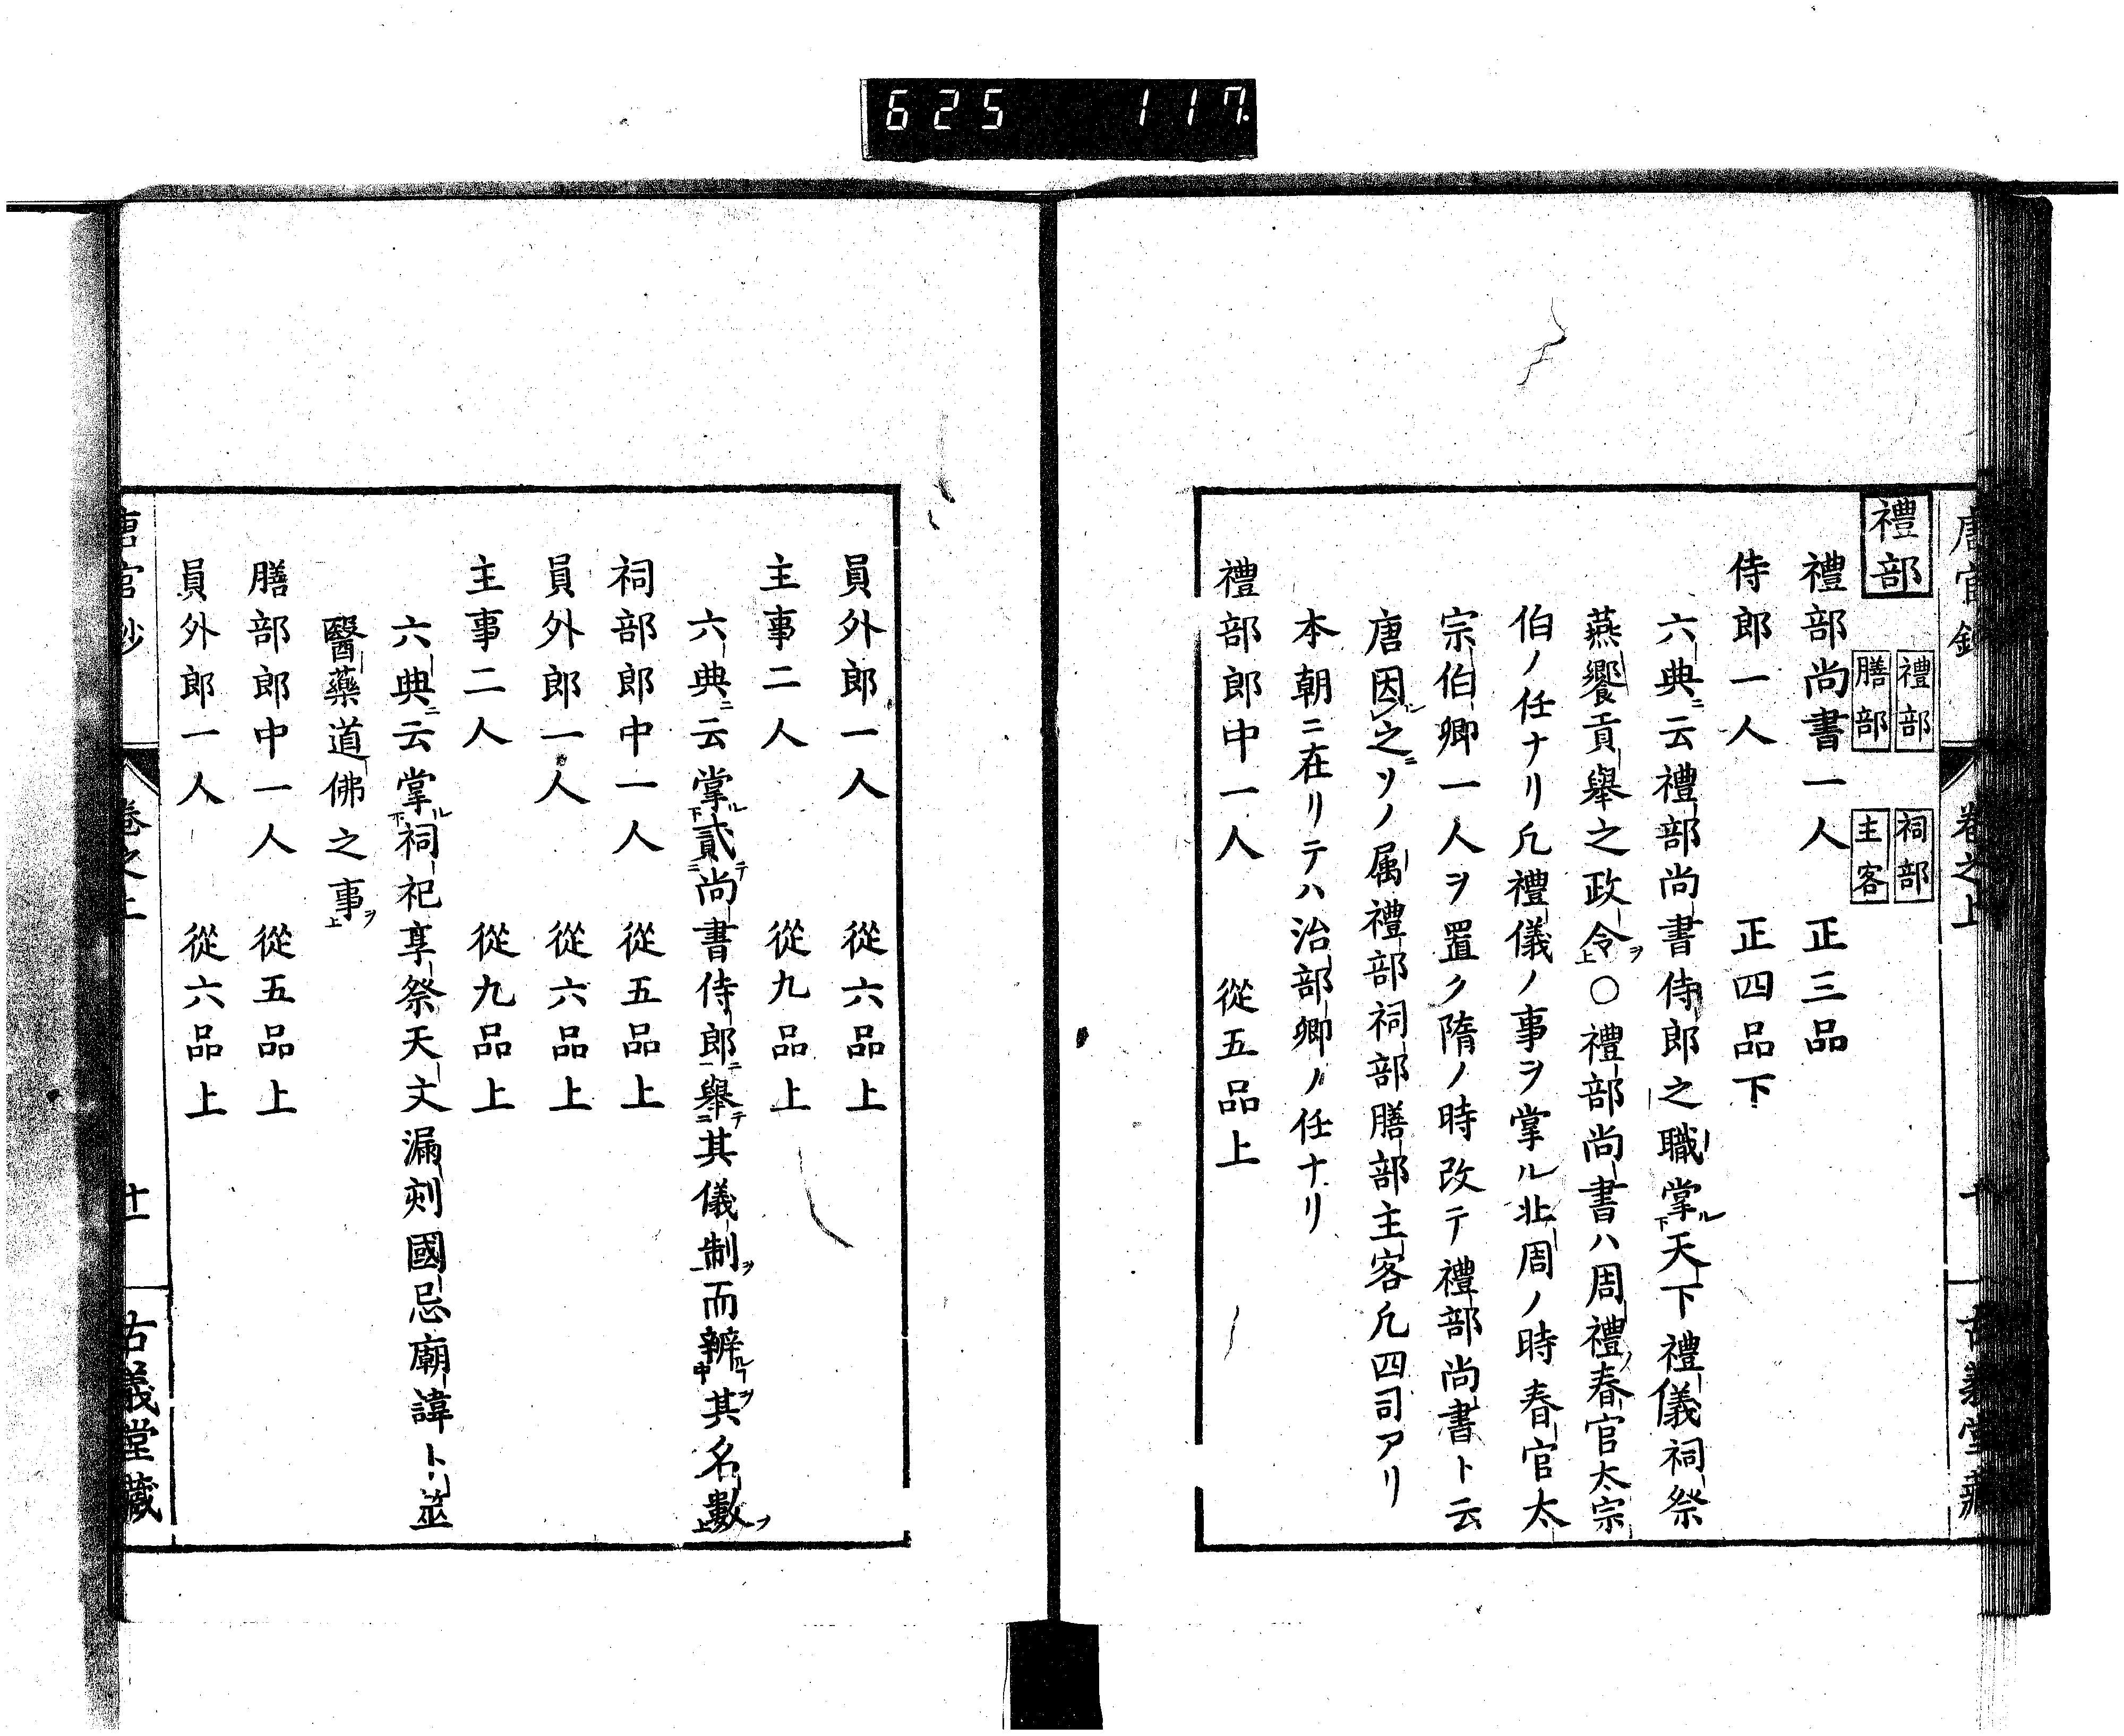 625 117.
唐官鈔 卷之上 十 古義堂藏
禮部
禮部 祠部
膳部 主客
禮部尚書一人 正三品
侍郎一人 正四品下
六典ニ云禮部尚書侍郎之職掌ル下天下禮儀祠祭
燕饗貢舉之政令ヲ上○禮部尚書ハ周禮ノ春官太宗
伯ノ任ナリ凢禮儀ノ事ヲ掌ル北周ノ時春官太
宗伯卿一人ヲ置ク隋ノ時改テ禮部尚書ト云
唐因ルレ之ニソノ属禮部祠部膳部主客凢四司アリ
本朝ニ在リテハ治部卿ノ任ナリ
禮部郎中一人 從五品上
員外郎一人 從六品上
主事二人 從九品上
六典ニ云掌ル下貳テ二尚書侍郎ニ一舉テ二其儀制ヲ一而辨ルヿヲ中其名數ヲ上
祠部郎中一人 從五品上
員外郎一人 從六品上
主事二人 從九品上
六典ニ云掌ル下祠祀享祭天文漏刻國忌廟諱ト並
醫藥道佛之事ヲ上
膳部郎中一人 從五品上
員外郎一人 從六品上
唐官鈔 卷之上 十一 古義堂藏